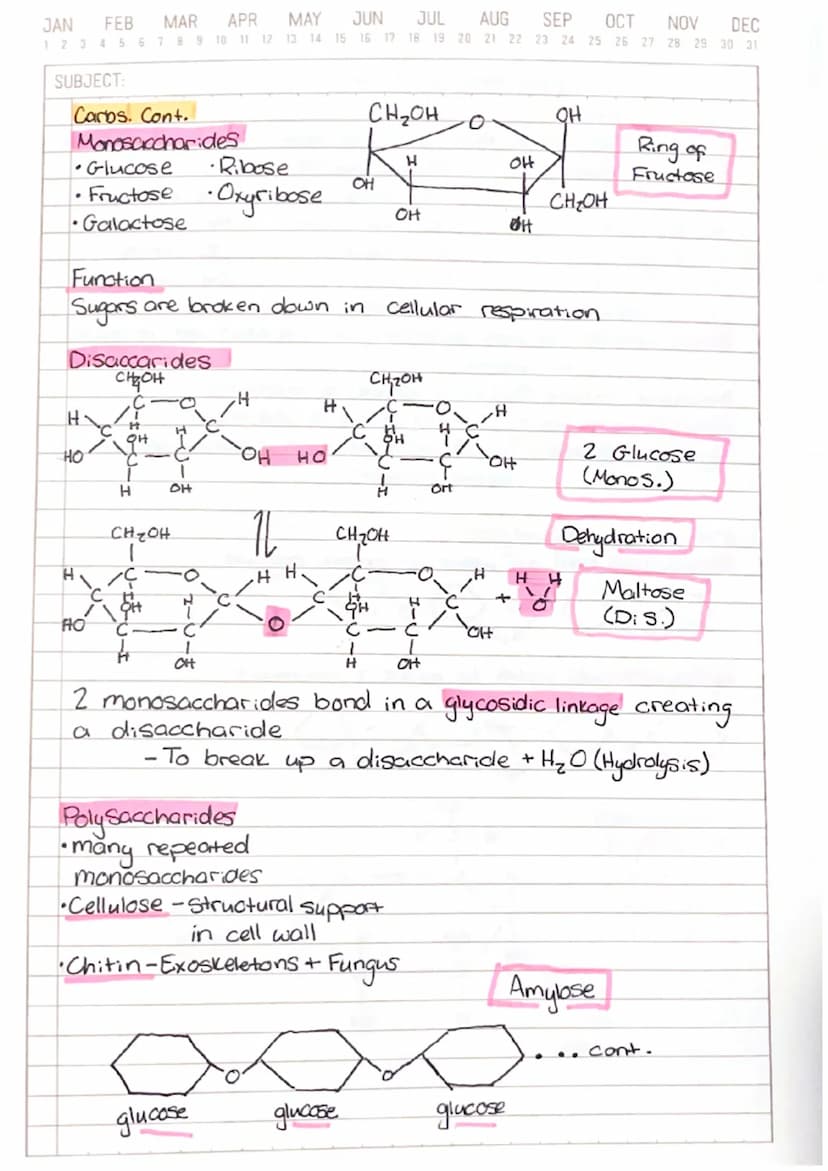 JAN FEB MAR APR MAY JUN JUL AUG SEP OCT NOV DEC
1 2 3 4 5 6 7 8 9 10 11 12 13 14 15 16 17 18 19 20 21 22 23 24 25 26 27 28 29 30 31
SUBJECT:
Carbs. Cont.
Monosaccharides
• Glucose • Ribose
• Fructose • Oxyribose
• Galactose
CH₂OH O OH
H OH
OH CH₂OH
OH OH
Ring of
Fructose
Function
Sugars are broken down in cellular respiration
Disaccarides
CH₂OH CH₂OH
C O H H C O H
H C H H C C H H C
OH OH
HO C C OH HO C C OH
H OH H OH
2 Glucose
(Monos.)
⇌
Dehydration
CH₂OH CH₂OH
H C O H H C O H H H
C H H C C H H C + O
OH OH
HO C C O C C OH
H OH H OH
Maltose
(Di S.)
2 monosaccharides bond in a glycosidic linkage creating
a disaccharide
- To break up a disaccharide + H₂O (Hydrolysis)
Polysaccharides
• many repeated
monosaccharides
• Cellulose - Structural support
in cell wall
• Chitin - Exoskeletons + Fungus
Amylose
O O . . . cont.
glucose glucose glucose